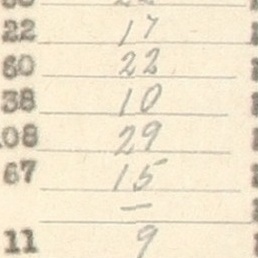 22 17
60 22
38 10
108 29
67 15
—
11 9